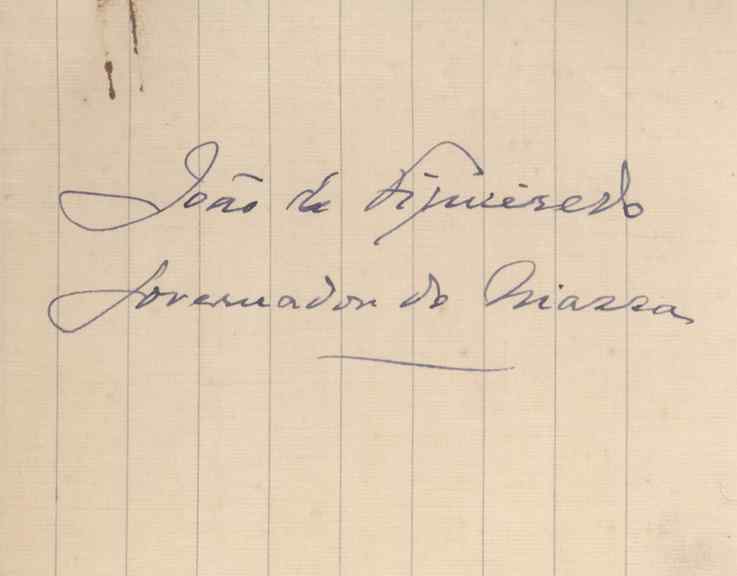 João de Figueiredo
Governador do Niassa